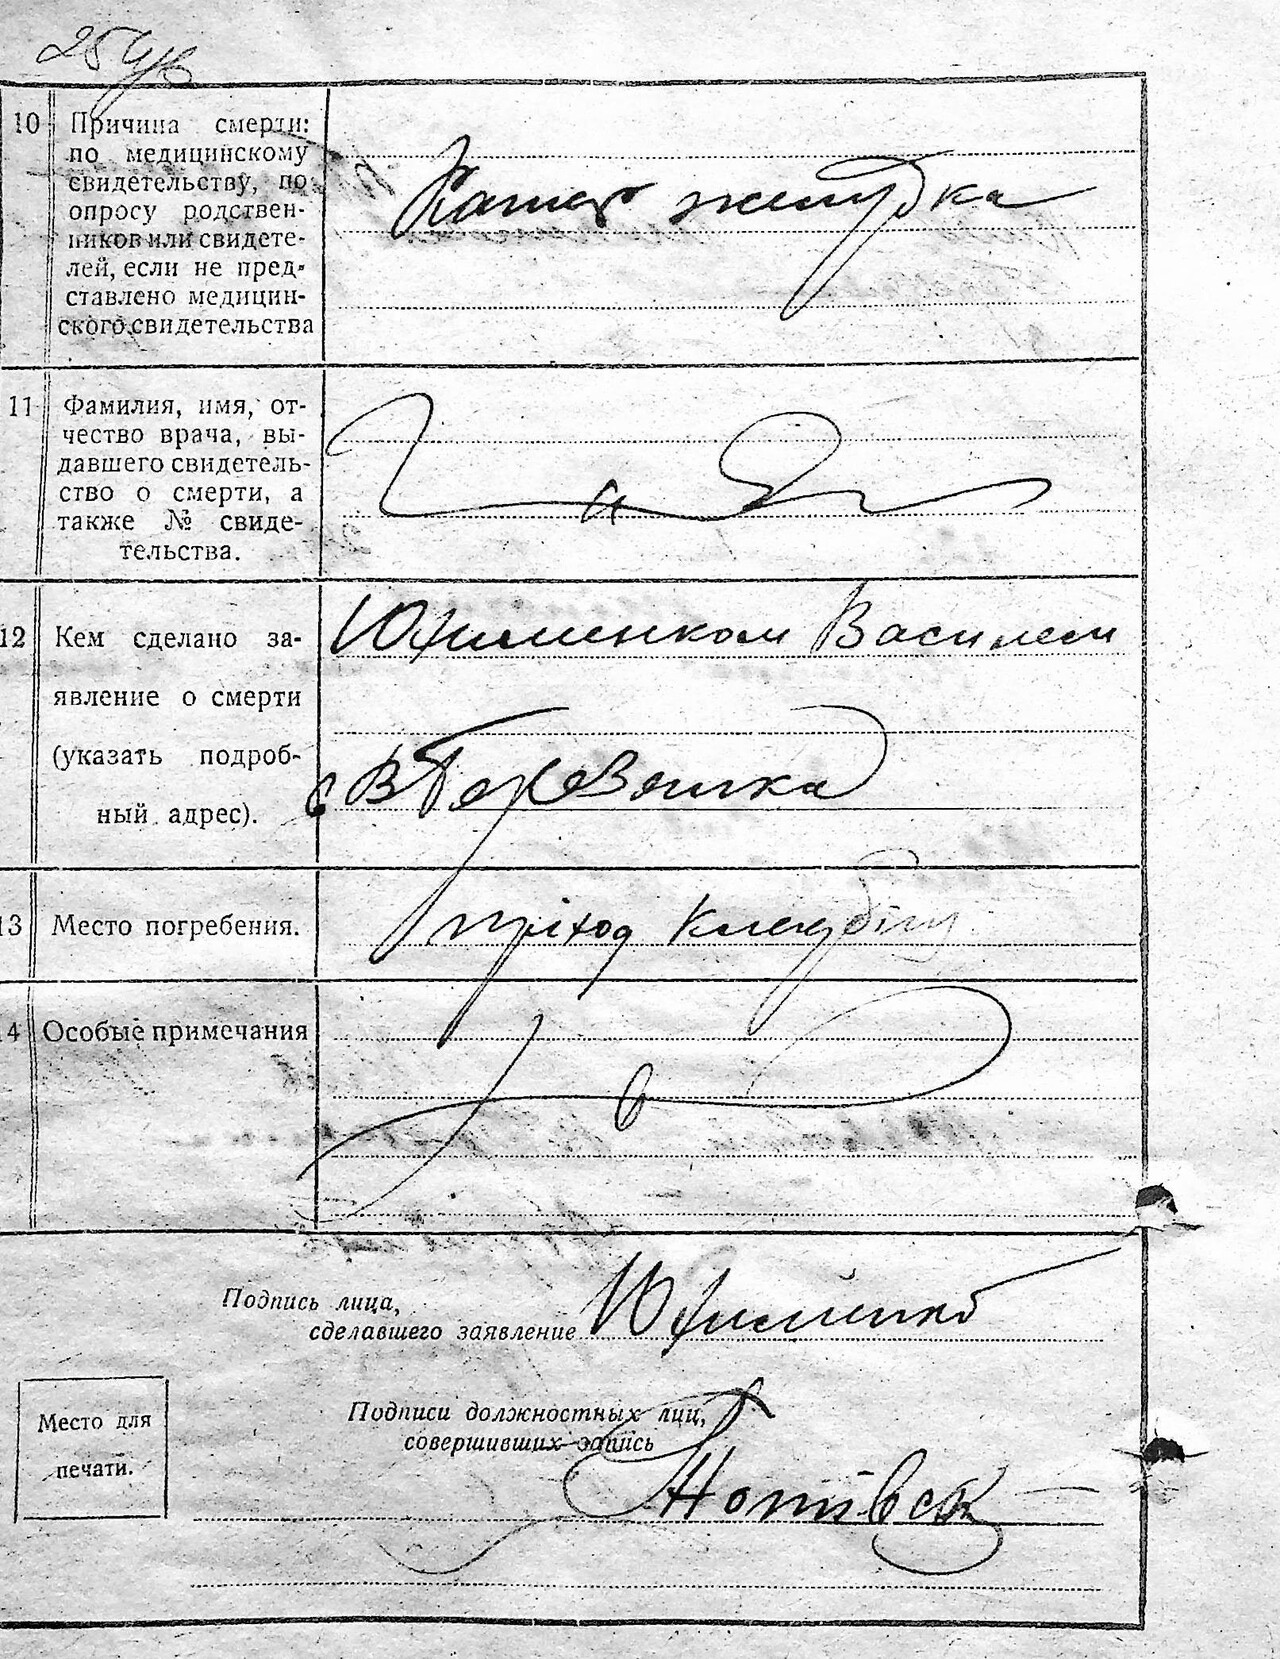 10 Причина смерти:
по медицинскому
свидетельству, по
опросу родствен-
ников или свидете-
лей, если не пред-
ставлено медицин-
ского свидетельства
желудка
11 Фамилия, имя, от-
чество врача, вы-
давшего свидетель-
ство о смерти, а
также № свиде-
тельства.
12 Кем сделано за-
явление о смерти
(указать подроб-
ный адрес).
Юхименком Василем
с В Перевалка
13 Место погребения.
приход
14 Особые примечания
Подпись лица,
сделавшего заявление Юхименко
Подписи должностных лиц,
совершивших запись
Место для
печати.